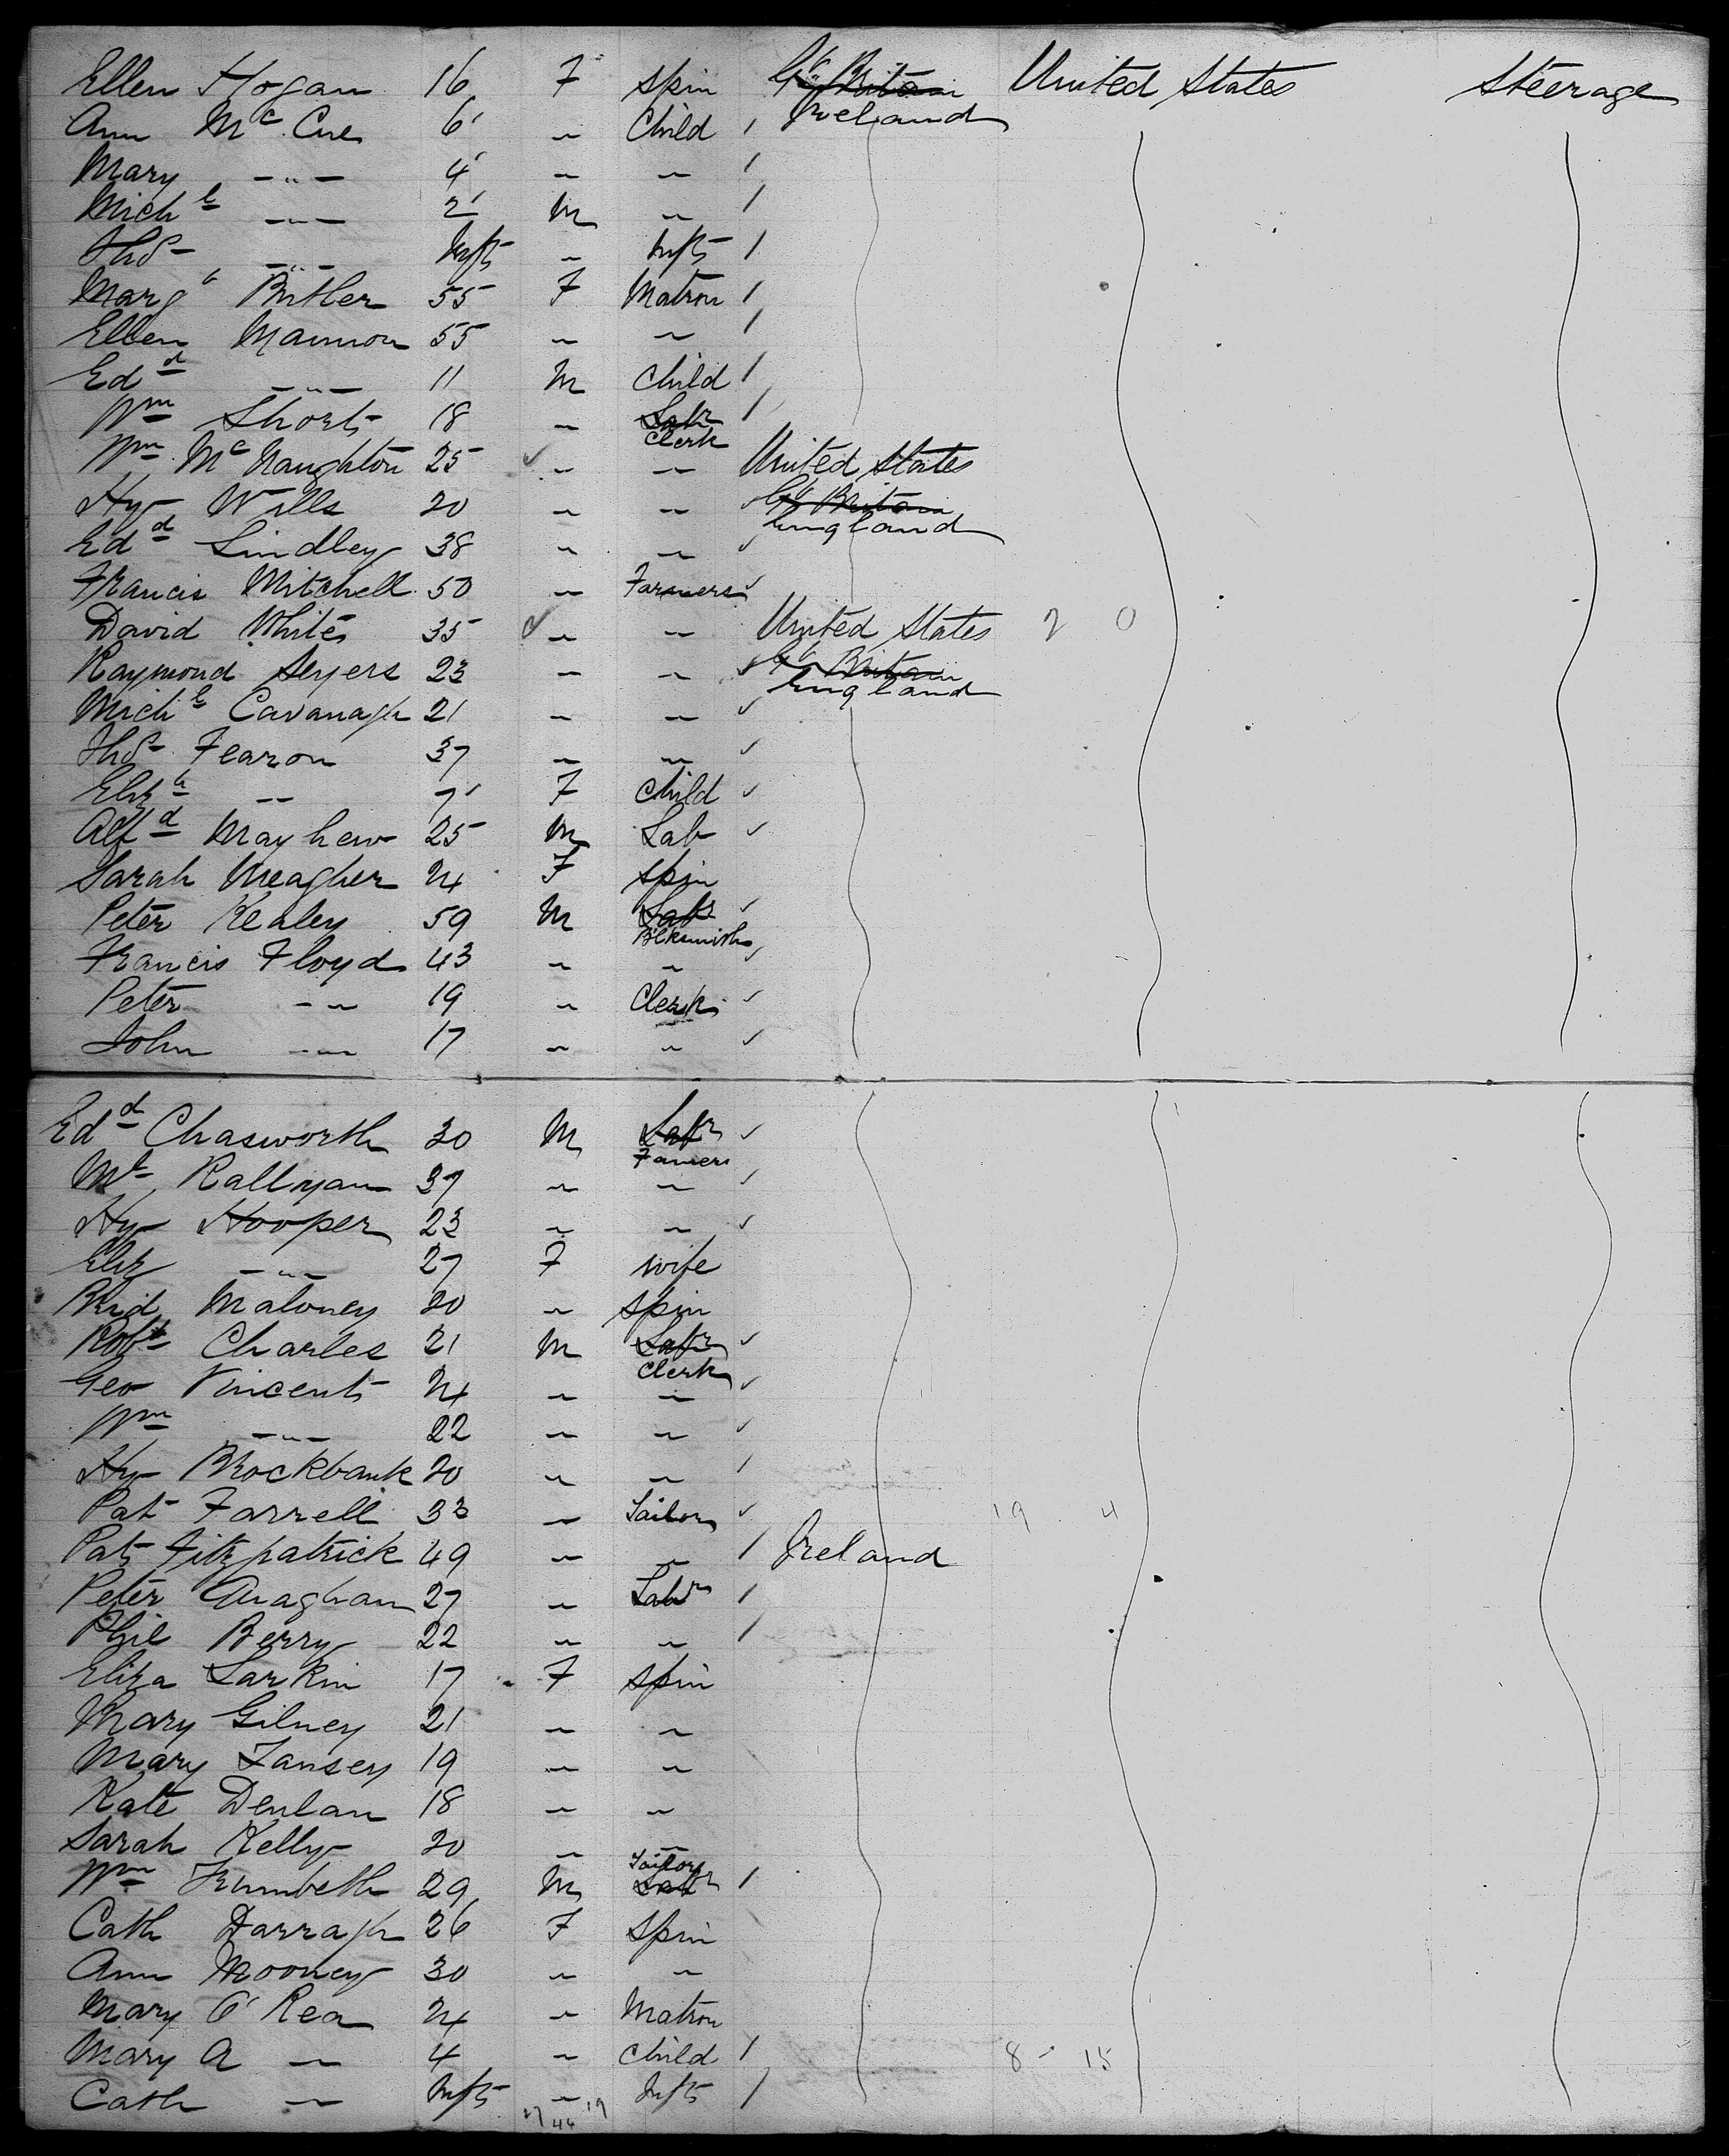 Ellen Hogan 16 F Spin Gt Britain United States Steerage
Ireland
Ann Mc Cue 6 " Child
Mary " 4 " "
Michl " 2 M "
Thos " Inft " Inft
Margt Butler 55 F Matron
Ellen Mannion 55 " "
Edd " 11 M Child
Wm Short 18 " Labr
Clerk
Wm Mc Naughton 25 " " United States
Hy Wills 20 " " Gt Britain
England
Edd Lindley 38 " "
Francis Mitchell 50 " Farmers
David White 35 " " United States 2 0
Raymond Seyers 23 " " Gt Britain
England
Michl Cavanagh 21 " "
Thos Fearon 37 " "
Elizh " 7 F Child
Alfd Mayhew 25 M Lab
Sarah Meagher 24 F Spin
Peter Kealey 59 M Labr
Blksmith
Francis Floyd 43 " "
Peter " 19 " Clerk
John " 17 " "
Edd Chasworth 30 M Labr
Farmer
Mt Kallyan 37 " "
Hy Hooper 23 " "
Eliz " 27 F Wife
Brid Maloney 20 " Spin
Robt Charles 21 M Labr
Clerk
Geo Vincent 24 " "
Wm " 22 " "
Hy Brockbank 20 " "
Pat Farrell 33 " Tailor 19 4
Pat Fitzpatrick 49 " " Ireland
Peter Anaghan 27 " Labr
Phil Berry 22 " "
Eliza Larkin 17 F Spin
Mary Gilney 21 " "
Mary Tansey 19 " "
Kate Denlan 18 " "
Sarah Kelly 20 " "
Tailor
Wm Trumbeth 29 M Labr
Cath Darragh 26 F Spin
Ann Mooney 30 " "
Mary O'Rea 24 " Matron
Mary A " 4 " Child 8 - 15
Cath " Inft " Inft
27 46 19